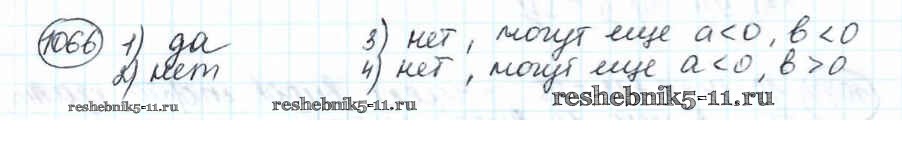 1066 1) да 3) нет, могут еще a<0, b<0
2) нет 4) нет, могут еще a<0, b>0
reshebnik5-11.ru reshebnik5-11.ru reshebnik5-11.ru